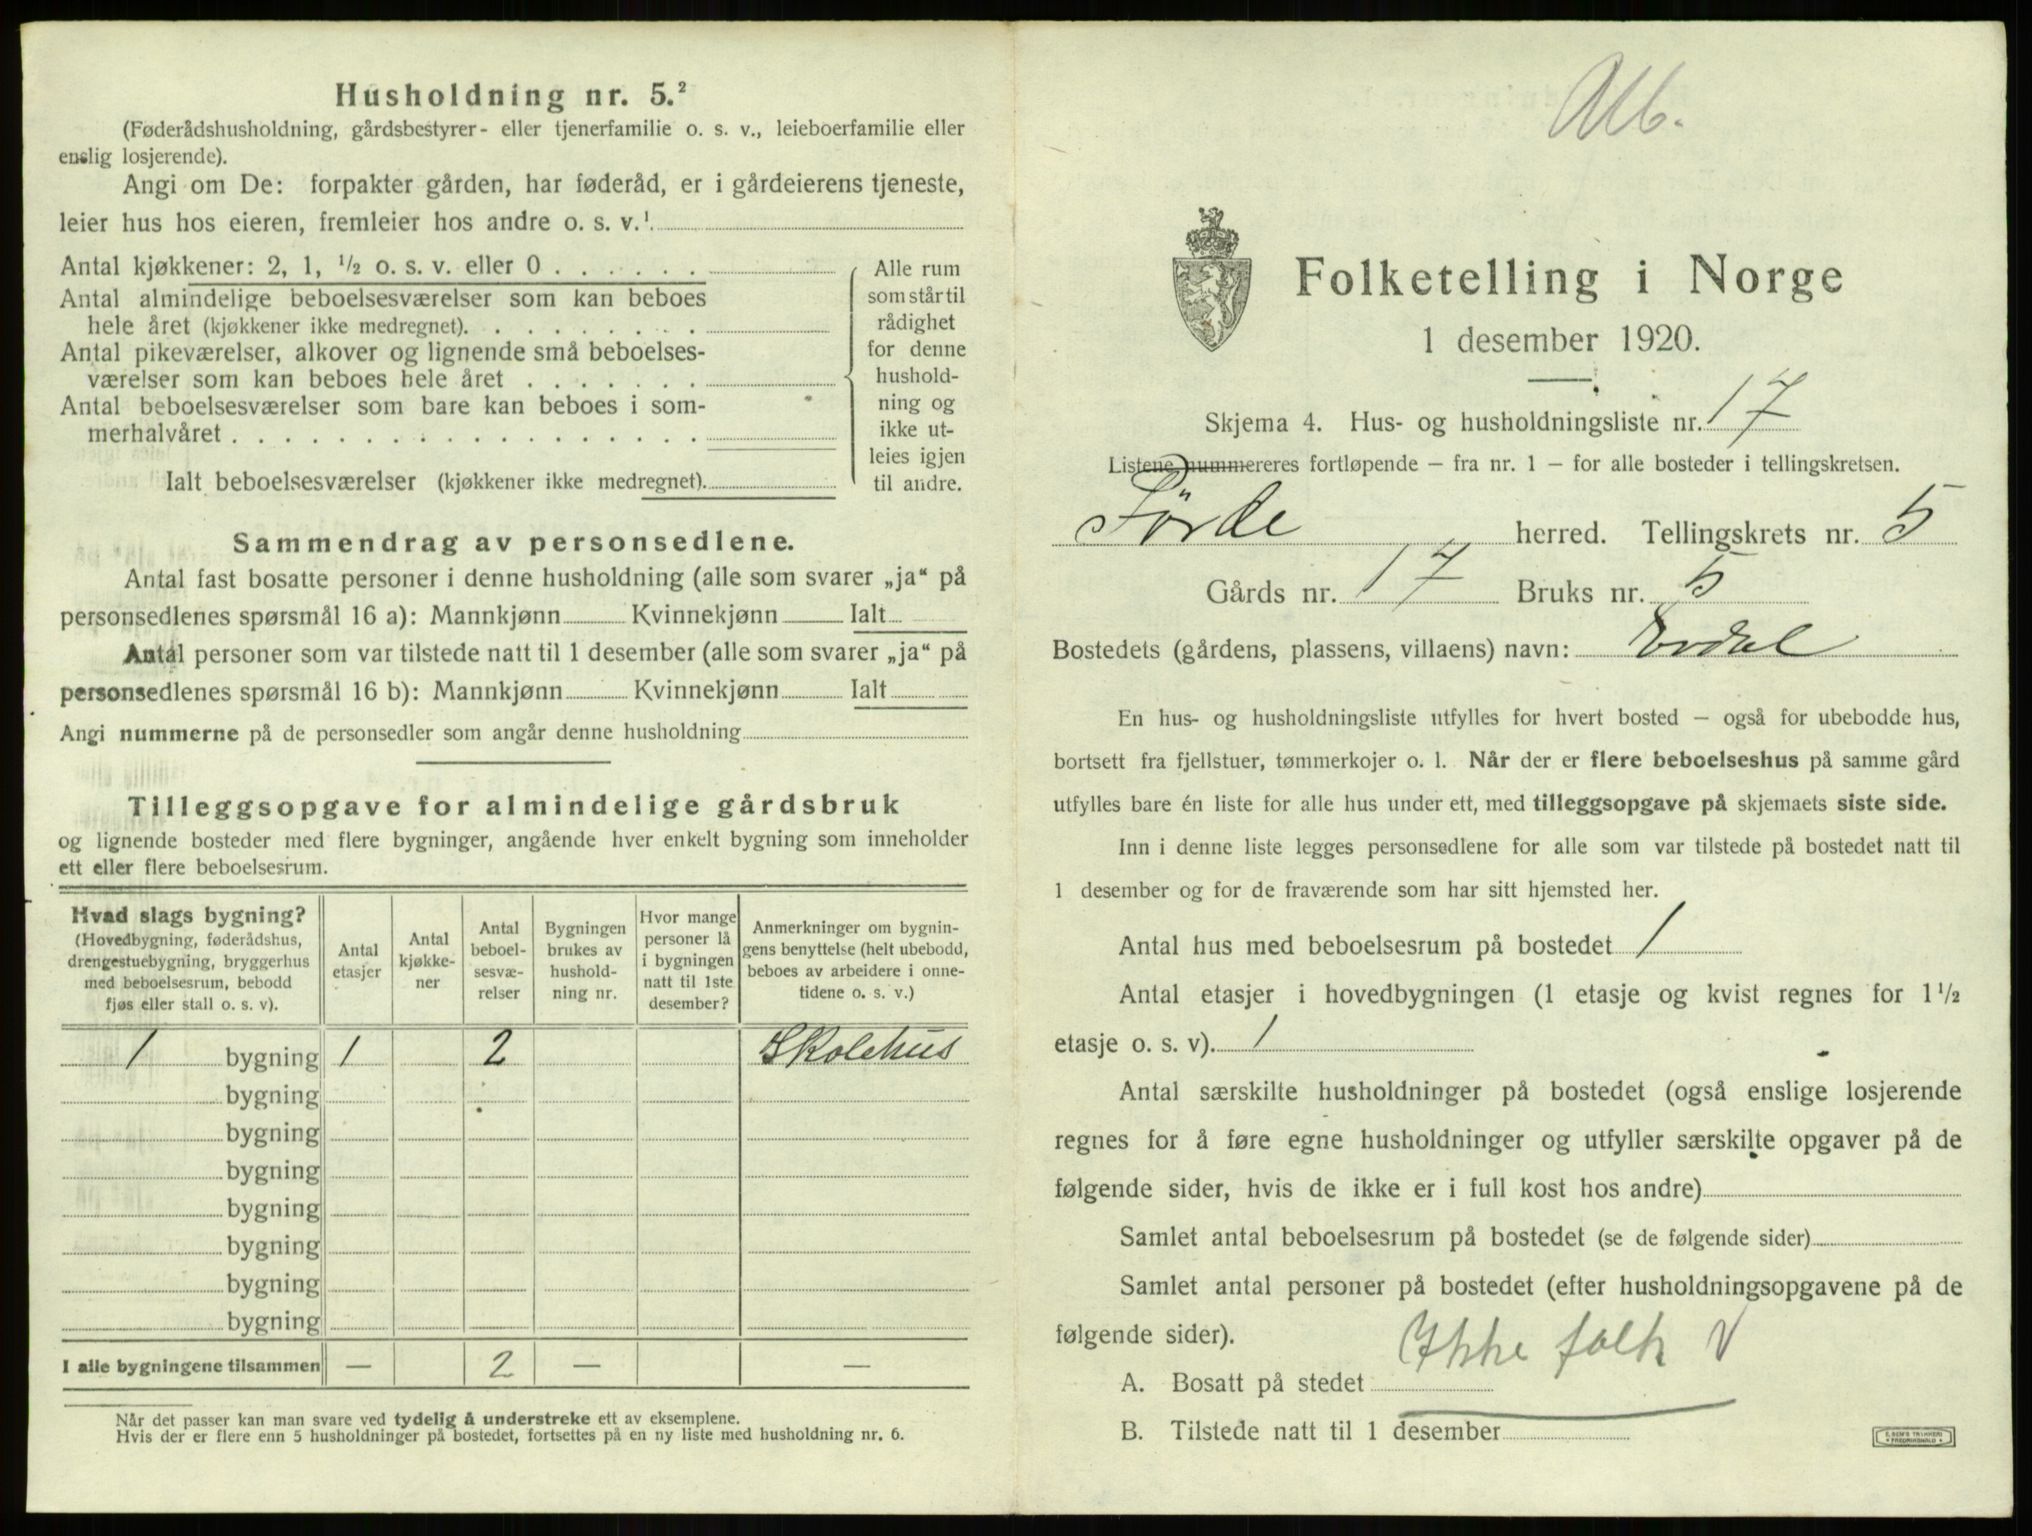 Husholdning nr. 5.²
(Føderådshusholdning, gårdsbestyrer- eller tjenerfamilie o. s. v., leieboerfamilie eller
enslig losjerende).
Angi om De: forpakter gården, har føderåd, er i gårdeierens tjeneste,
leier hus hos eieren, fremleier hos andre o. s. v.¹
Antal kjøkkener: 2, 1, ½ o. s. v. eller 0 . . . . . .
Antal almindelige beboelsesværelser som kan beboes
hele året (kjøkkener ikke medregnet). . . . . . . . .
Antal pikeværelser, alkover og lignende små beboelses-
værelser som kan beboes hele året . . . . . . .
Antal beboelsesværelser som bare kan beboes i som-
merhalvåret . . . . . . . . . . . . . . . . . .
Ialt beboelsesværelser (kjøkkener ikke medregnet).
Alle rum
som står til
rådighet
for denne
hushold-
ning og
ikke ut-
leies igjen
til andre.
Sammendrag av personsedlene.
Antal fast bosatte personer i denne husholdning (alle som svarer „ja“ på
personsedlenes spørsmål 16 a): Mannkjønn Kvinnekjønn Ialt
Antal personer som var tilstede natt til 1 desember (alle som svarer „ja“ på
personsedlenes spørsmål 16 b): Mannkjønn Kvinnekjønn Ialt
Angi nummerne på de personsedler som angår denne husholdning
Tilleggsopgave for almindelige gårdsbruk
og lignende bosteder med flere bygninger, angående hver enkelt bygning som inneholder
ett eller flere beboelsesrum.
Hvad slags bygning?
(Hovedbygning, føderådshus,
drengestuebygning, bryggerhus
med beboelsesrum, bebodd
fjøs eller stall o. s. v).
Antal
etasjer
Antal
kjøkke-
ner
Antal
beboel-
sesvæ-
relser
Bygningen
brukes av
hushold-
ning nr.
Hvor mange
personer lå
i bygningen
natt til 1ste
desember?
Anmerkninger om bygnin-
gens benyttelse (helt ubebodd,
beboes av arbeidere i onne-
tidene o. s. v.)
1 bygning 1 2 Skolehus
bygning
bygning
bygning
bygning
bygning
bygning
bygning
I alle bygningene tilsammen — 2 — —
Når det passer kan man svare ved tydelig å understreke ett av eksemplene.
Hvis der er flere enn 5 husholdninger på bostedet, fortsettes på en ny liste med husholdning nr. 6.
Folketelling i Norge
1 desember 1920.
Skjema 4. Hus- og husholdningsliste nr. 17
Listene nummereres fortløpende — fra nr. 1 — for alle bosteder i tellingskretsen.
Förde herred. Tellingskrets nr. 5
Gårds nr. 17 Bruks nr. 5
Bostedets (gårdens, plassens, villaens) navn: Erdal
En hus- og husholdningsliste utfylles for hvert bosted — også for ubebodde hus,
bortsett fra fjellstuer, tømmerkojer o. l. Når der er flere beboelseshus på samme gård
utfylles bare én liste for alle hus under ett, med tilleggsopgave på skjemaets siste side.
Inn i denne liste legges personsedlene for alle som var tilstede på bostedet natt til
1 desember og for de fraværende som har sitt hjemsted her.
Antal hus med beboelsesrum på bostedet 1
Antal etasjer i hovedbygningen (1 etasje og kvist regnes for 1½
etasje o. s. v). 1
Antal særskilte husholdninger på bostedet (også enslige losjerende
regnes for å føre egne husholdninger og utfyller særskilte opgaver på de
følgende sider, hvis de ikke er i full kost hos andre)
Samlet antal beboelsesrum på bostedet (se de følgende sider)
Samlet antal personer på bostedet (efter husholdningsopgavene på de
følgende sider). Ikke folk V
A. Bosatt på stedet
B. Tilstede natt til 1 desember